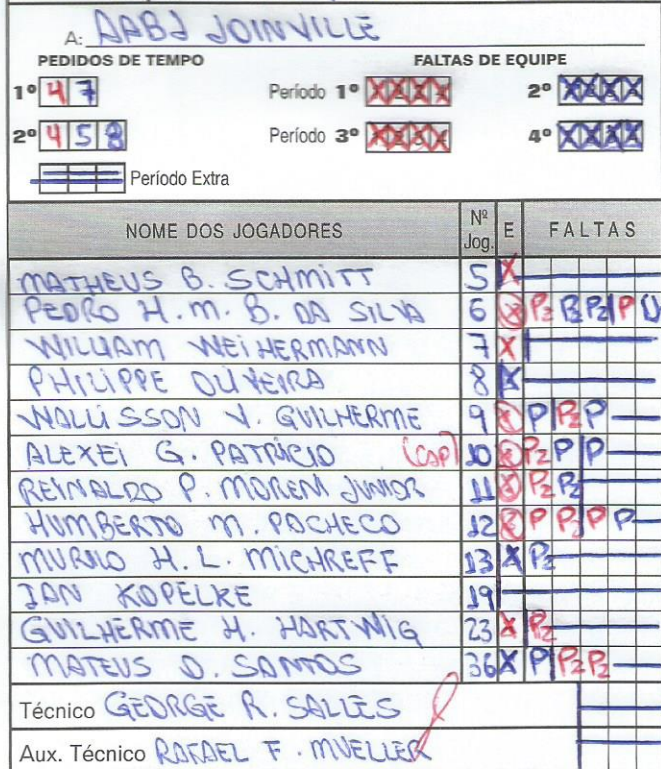 A: AABJ JOINVILLE
PEDIDOS DE TEMPO FALTAS DE EQUIPE
1º 4 7 Período 1º X X X X 2º X X X X
2º 4 5 8 Período 3º X X X X 4º X X X X
Período Extra
NOME DOS JOGADORES Nº Jog. E FALTAS
MATHEUS B. SCHMITT 5 X
PEDRO H. M. B. DA SILVA 6 X P2 P2 P2 P U
WILLIAM WEIHERMANN 7 X
PHILIPPE OLIVEIRA 8 X
WALLISSON V. GUILHERME 9 X P P2 P
ALEXEI G. PATRICIO (CAP) 10 X P2 P P
REINALDO P. MORENI JUNIOR 11 X P2 P2
HUMBERTO M. PACHECO 12 X P P2 P P
MURILO H. L. MICHREFF 13 X P2
IAN KOPELKE 19
GUILHERME H. HARTWIG 23 X P2
MATEUS D. SANTOS 36 X P P2 P2
Técnico GEORGE R. SALLES
Aux. Técnico RAFAEL F. MUELLER